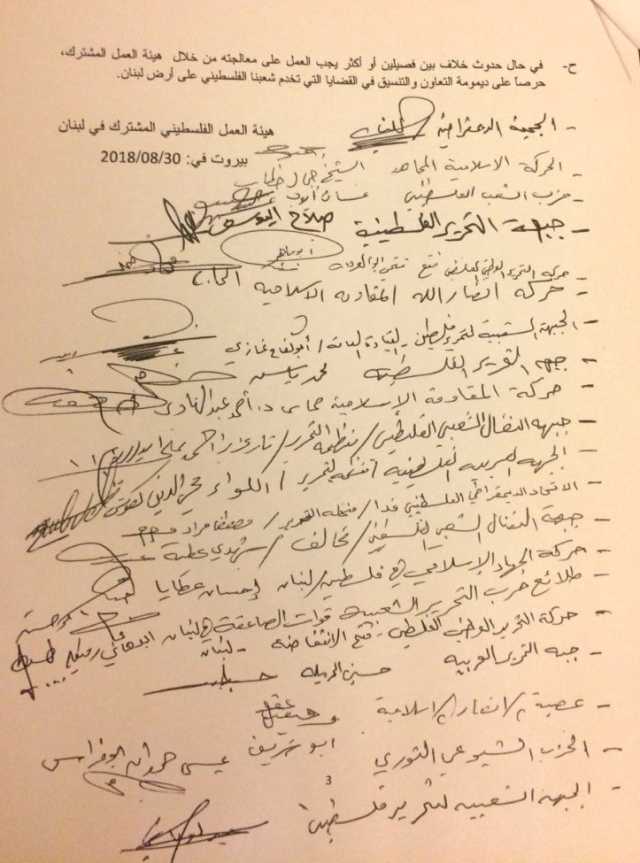 ح- في حال حدوث خلاف بين فصيلين أو أكثر يجب العمل على معالجته من خلال هيئة العمل المشترك،
حرصاً على ديمومة التعاون والتنسيق في القضايا التي تخدم شعبنا الفلسطيني على أرض لبنان.
هيئة العمل الفلسطيني المشترك في لبنان
بيروت في: 2018/08/30
- الجبهة الديمقراطية
- الحركة الاسلامية المجاهدة الشيخ جمال خطاب
- حزب الشعب الفلسطيني غسان أيوب
- جبهة التحرير الفلسطينية صلاح اليوسف
- حركة التحرير الوطني الفلسطيني فتح فتحي ابو العردات
- حركة انصار الله المقاومة الاسلامية
- الجبهة الشعبية لتحرير فلسطين - القيادة العامة / أبو كفاح غازي
- جبهة التحرير الفلسطينية محمد ياسين
- حركة المقاومة الإسلامية حماس د. أحمد عبد الهادي
- جبهة النضال الشعبي الفلسطيني / منظمة التحرير /
- الجبهة العربية الفلسطينية / منظمة التحرير / اللواء محي الدين
- الاتحاد الديمقراطي الفلسطيني فدا / منظمة التحرير / مصطفى مراد
- جبهة النضال الشعبي الفلسطيني / تحالف / شهدي عطية
- حركة الجهاد الإسلامي في فلسطين / لبنان إحسان عطايا
- طلائع حرب التحرير الشعبية قوات الصاعقة في لبنان
- حركة التحرير الوطني الفلسطيني - فتح الانتفاضة - لبنان
- جبهة التحرير العربية حسين
- عصبة الأنصار الإسلامية
ابو شريف
- الحزب الشيوعي الثوري
- الجبهة الشعبية لتحرير فلسطين
3